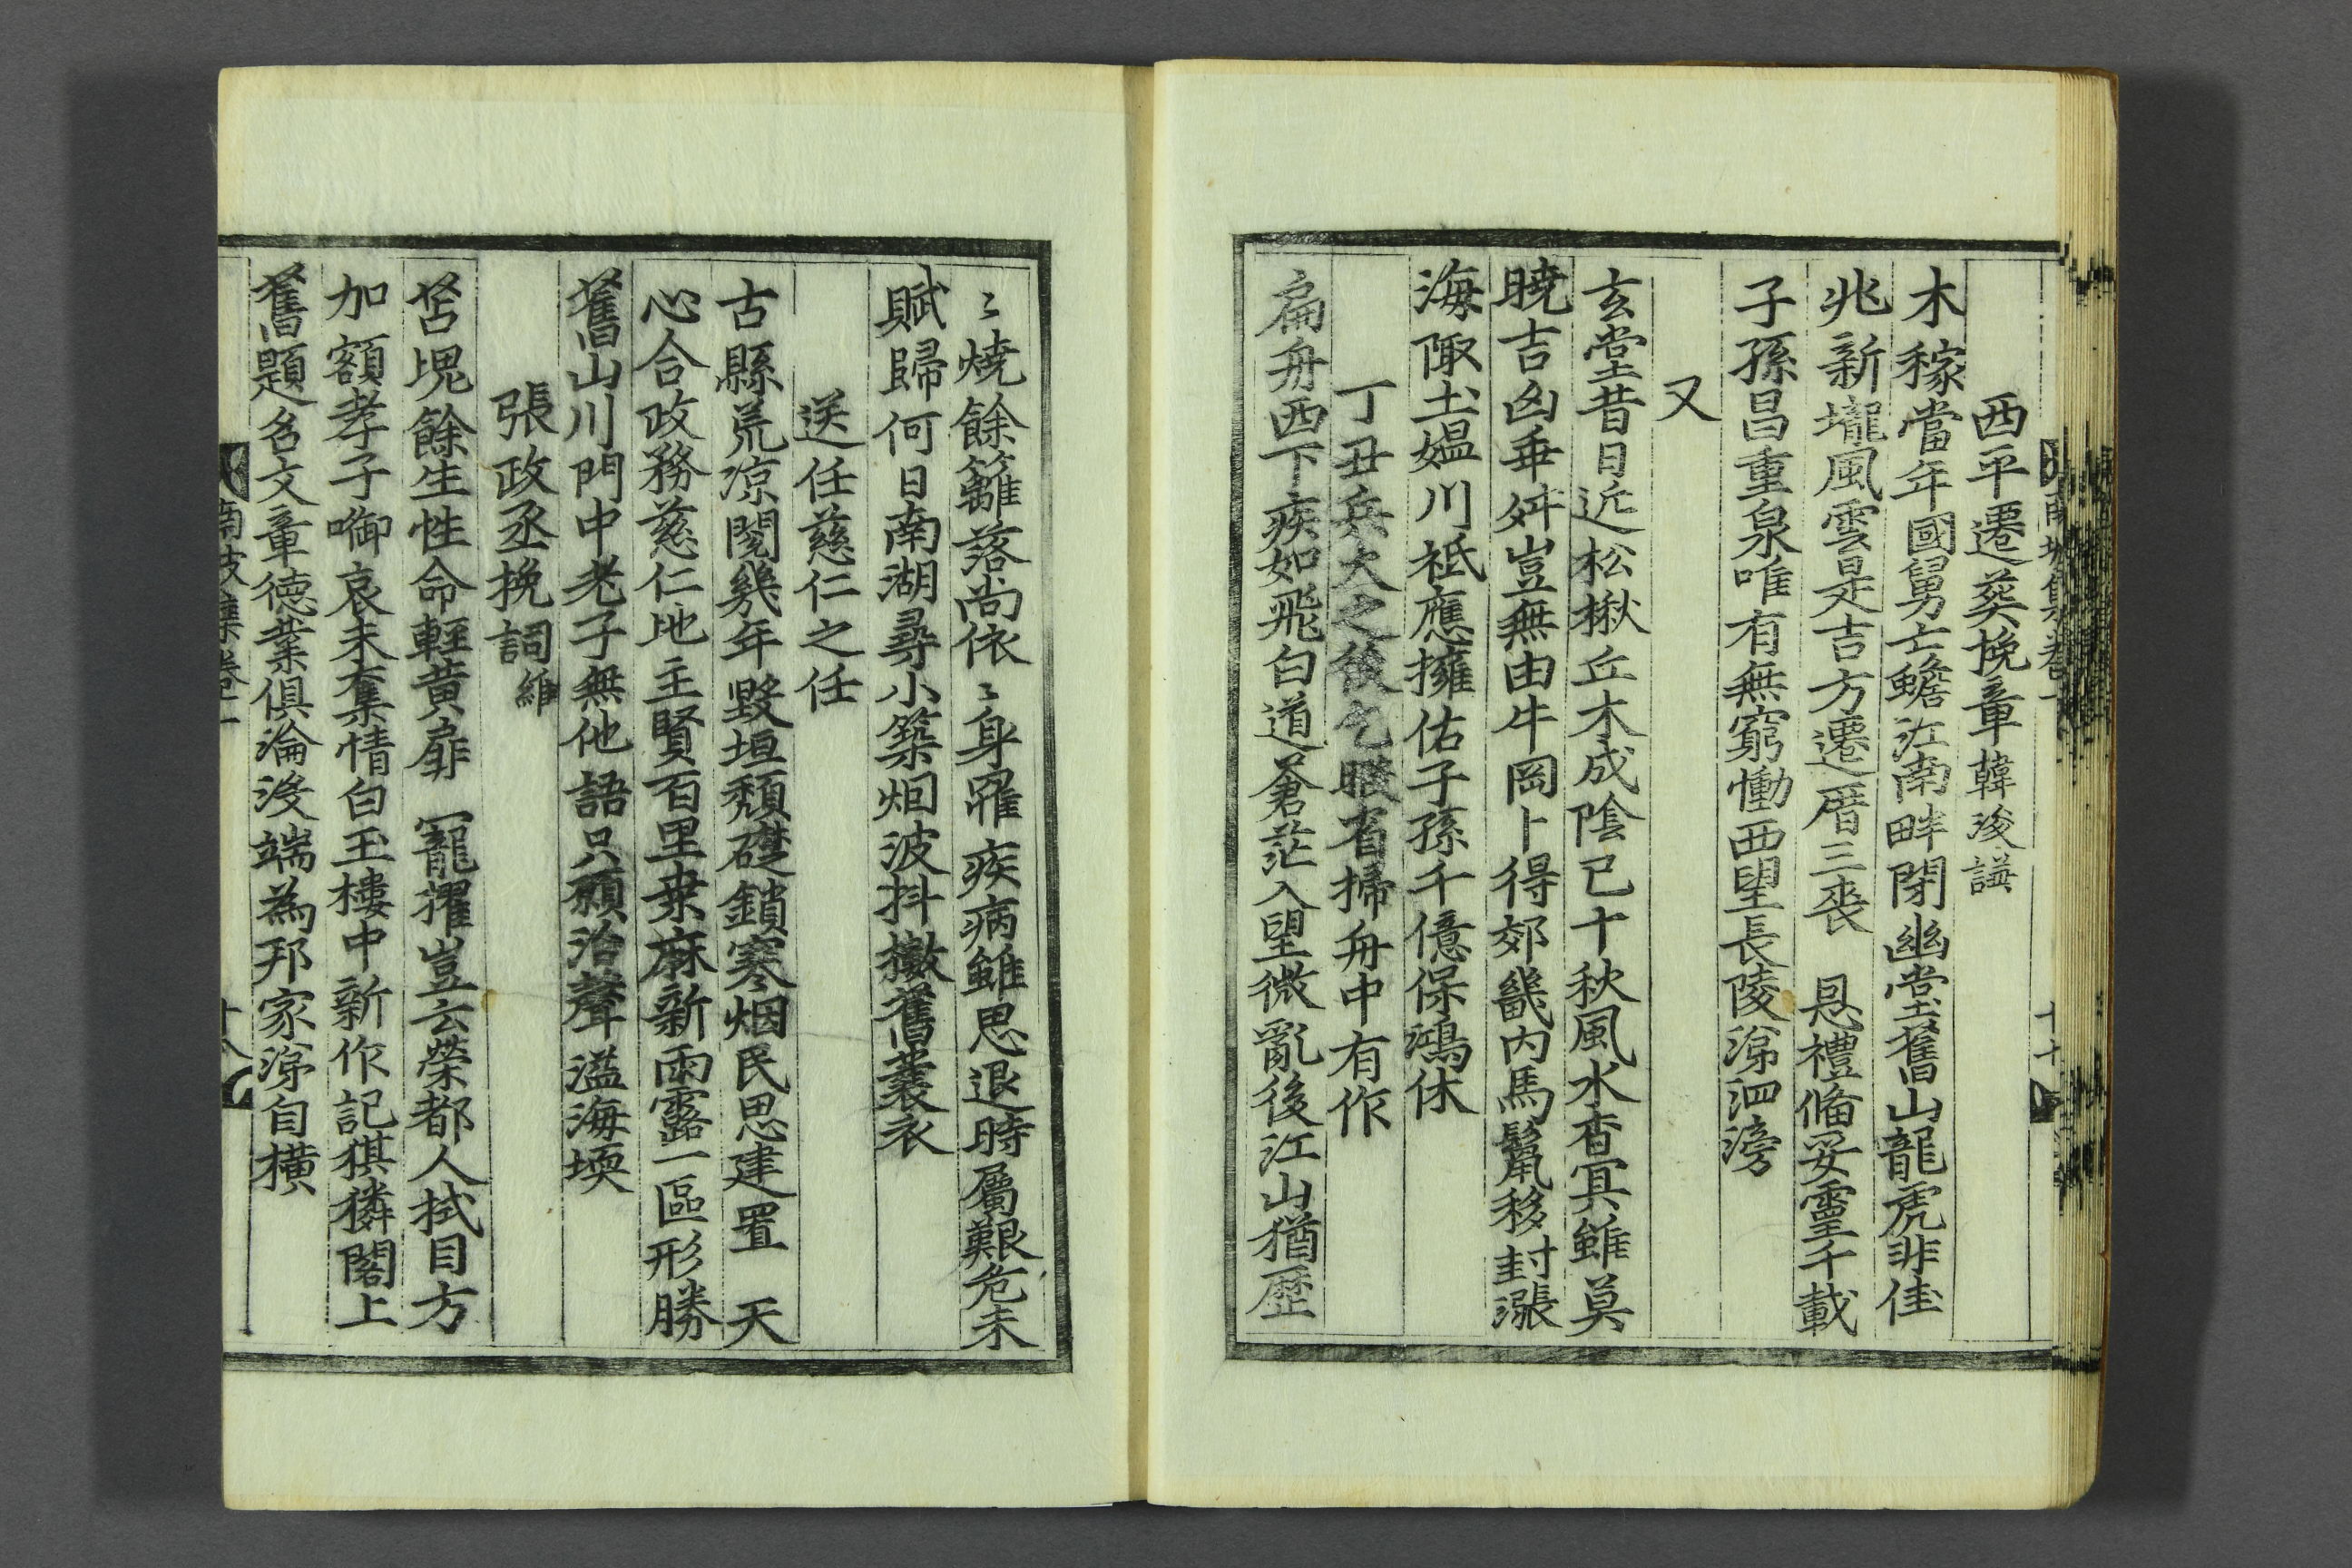 西平遷葬挽章韓浚謙
木稼當年國舅亡蟾江南畔閉幽堂舊山龍虎非佳
兆新壠風雲是吉方遷厝三喪 恩禮俻妥靈千載
子孫昌重泉唯有無窮慟西望長陵涕泗滂
又
玄堂昔日近松楸丘木成陰已十秋風水杳冥雖莫
曉吉凶乖舛豈無由牛岡卜得郊畿內馬鬣移封漲
海陬土媼川祗應擁佑子孫千億保鴻休
丁丑兵火之後乞暇省掃舟中有作
扁舟西下疾如飛白道蒼茫入望微亂後江山猶歷
〻燒餘籬落尚依〻身罹疾病雖思退時屬艱危未
賦歸何日南湖尋小築烟波抖擻舊裳衣
送任慈仁之任
古縣荒凉閱幾年毀垣頹礎鎖寒烟民思建置 天
心合政務慈仁地主賢百里桒麻新雨露一區形勝
舊山川門中老子無他語只願治聲溢海堧
張政丞挽詞維
苫塊餘生性命輕黄扉 寵擢豈云榮都人拭目方
加額孝子啣哀未奪情白玉樓中新作記猉獜閣上
舊題名文章德業俱淪沒端為邦家涕自橫
南坡集卷一 十八